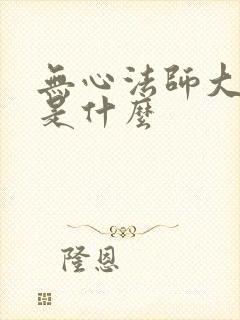 無心法師大
是什麼
隆恩